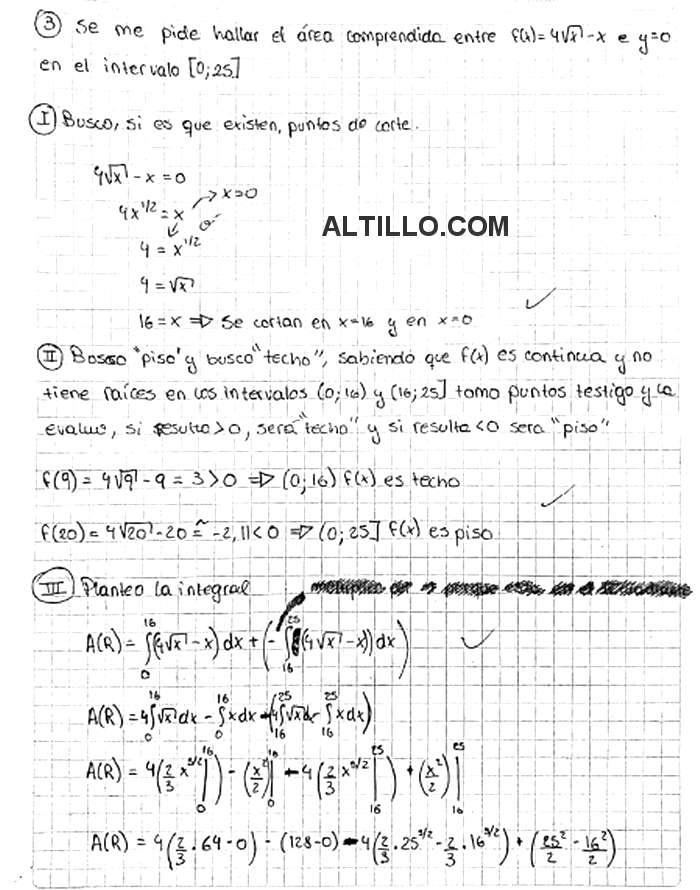 ③ Se me pide hallar el área comprendida entre f(x)=4√x - x e y=0
en el intervalo [0;25]
Ⓘ Busco, si es que existen, puntos de corte.
4√x - x = 0
4x^1/2 = x → x=0
ALTILLO.COM
4 = x^1/2
4 = √x
16 = x ⇒ Se cortan en x=16 y en x=0
Ⓘⓘ "piso" y busco "techo", sabiendo que f(x) es continua y no
tiene raíces en los intervalos (0;16) y (16;25] tomo puntos testigo y la
evaluo, si resulta >0, será "techo" y si resulta <0 sera "piso"
f(9) = 4√9 - 9 = 3 > 0 ⇒ (0;16) f(x) es techo
f(20) = 4√20 - 20 ≅ -2,11 < 0 ⇒ (0;25] f(x) es piso
ⓘⓘⓘ Planteo la integral
A(R) = ∫₀¹⁶ (4√x - x) dx + (- ∫₁₆²⁵ (4√x - x)) dx)
A(R) = 4∫₀¹⁶ √x dx - ∫₀¹⁶ x dx - (4∫₁₆²⁵ √x dx - ∫₁₆²⁵ x dx)
A(R) = 4(2/3 x^3/2 |₀¹⁶) - (x²/2)|₀¹⁶ - 4(2/3 x^3/2 |₁₆²⁵) + (x²/2)|₁₆²⁵
A(R) = 4(2/3 . 64 - 0) - (128 - 0) - 4(2/3 . 25^3/2 - 2/3 . 16^3/2) + (25²/2 - 16²/2)